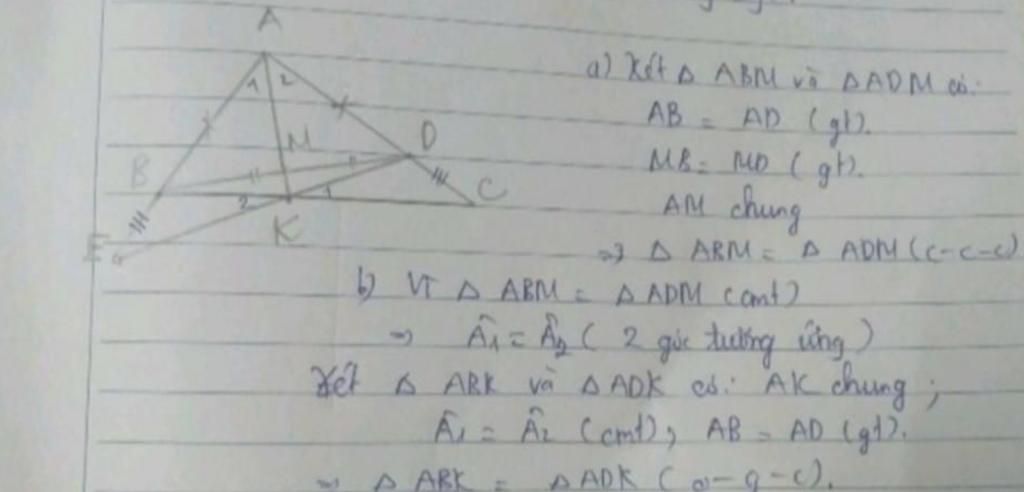 A
1 2
M
D
B
C
2 1
K
E
a) Xét Δ ABM và ΔADM có:
AB = AD (gt).
MB = MD (gt).
AM chung
=> Δ ABM = Δ ADM (c-c-c)
b) Vì Δ ABM = ΔADM (cmt)
=> Â1 = Â2 ( 2 góc tương ứng )
Xét Δ ABK và ΔADK có: AK chung ;
Â1 = Â2 (cmt), AB = AD (gt).
=> Δ ABK = ΔADK ( c-g-c ).